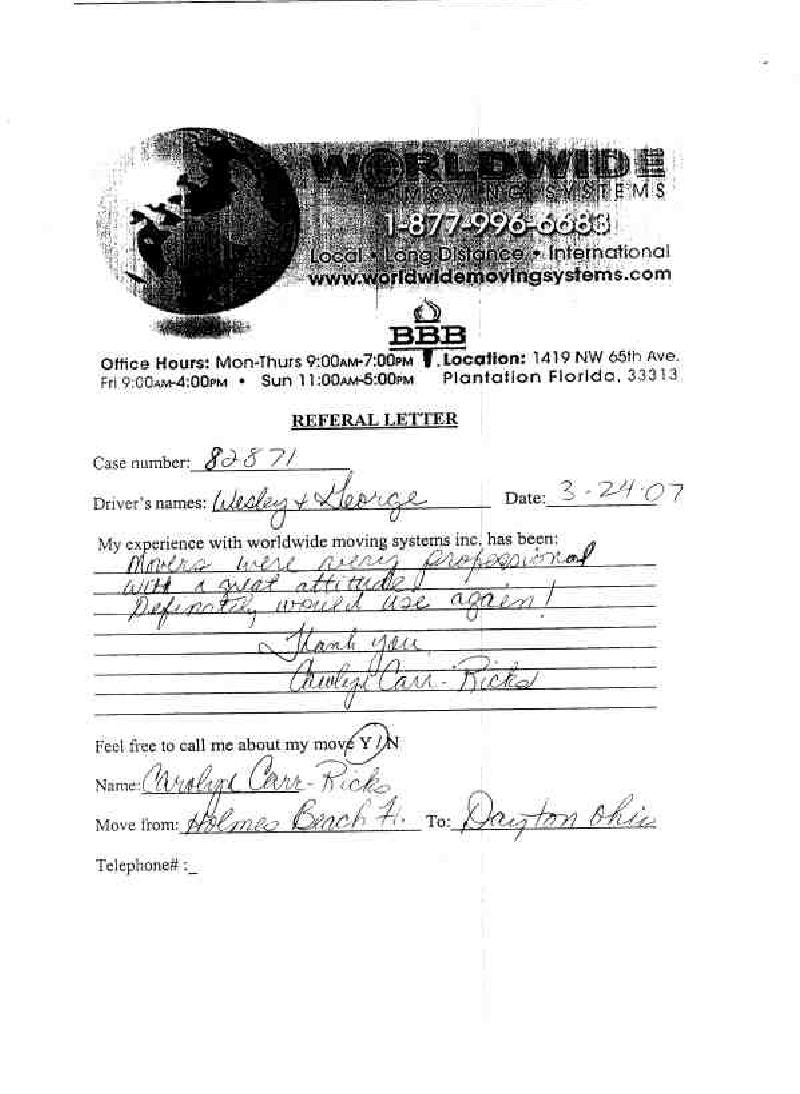 WORLDWIDE
MOVING SYSTEMS
1-877-996-6683
Local • Long Distance • International
www.worldwidemovingsystems.com
BBB
Office Hours: Mon-Thurs 9:00AM-7:00PM
Fri 9:00AM-4:00PM • Sun 11:00AM-5:00PM
Location: 1419 NW 65th Ave.
Plantation Florida, 33313
REFERAL LETTER
Case number: 82871
Driver's names: Wesley + George Date: 3-24-07
My experience with worldwide moving systems inc. has been:
Movers were very professional
with a great attitude!
Definately would use again!
Thank you
Carolyn Carr-Ricks
Feel free to call me about my move Y / N
Name: Carolyn Carr-Ricks
Move from: Holmes Beach Fl. To: Dayton Ohio
Telephone# :_